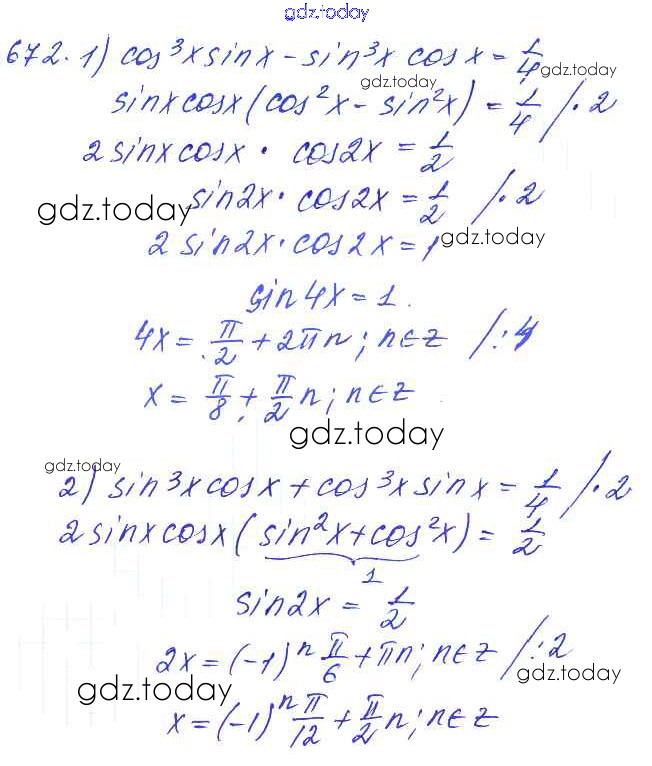 gdz.today
672. 1) cos³x sinx - sin³x cosx = 1/4 gdz.today
gdz.today
sinx cosx (cos²x - sin²x) = 1/4 /·2
2 sinx cosx · cos2x = 1/2
gdz.today sin2x · cos2x = 1/2 /·2
2 sin2x · cos2x = 1 gdz.today
sin4x = 1.
4x = π/2 + 2πn; n∈Z /:4
x = π/8 + π/2 n; n∈Z
gdz.today
gdz.today
2) sin³x cosx + cos³x sinx = 1/4 /·2
2 sinx cosx (sin²x + cos²x) = 1/2
1
sin2x = 1/2
2x = (-1)ⁿ π/6 + πn; n∈Z /:2
gdz.today gdz.today
x = (-1)ⁿ π/12 + π/2 n; n∈Z